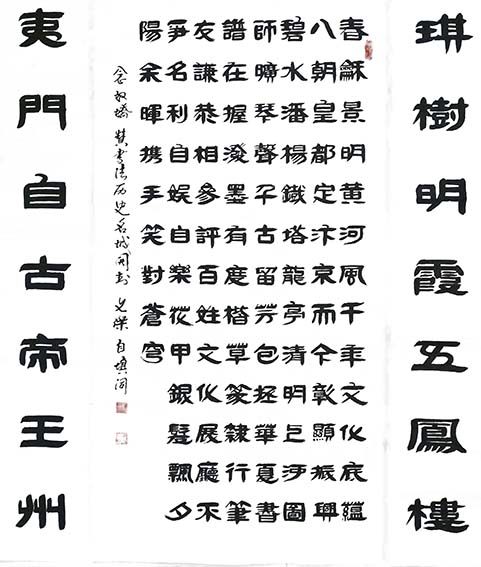 琪樹明霞五鳳樓
春穌景明黄河風千年文化底蘊
八朝皇都定汴京而今彰顯振興
碧水潘楊鐵塔龍亭清明上河圖
師曠琴聲千古留芳包拯華夏書
譜在握潑墨有度楷草篆隸行筆
友謙恭相參評百姓文化展廳不
爭名利自娱自樂從甲銀髮飄夕
陽余暉携手笑對蒼穹
念奴嬌 贊書法历史名城開封 文榮自填詞
夷門自古帝王州